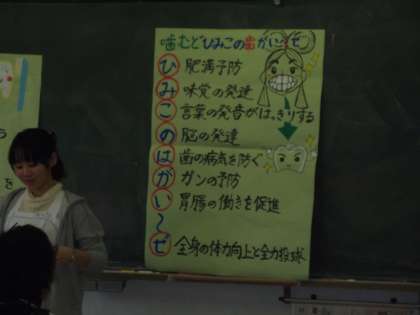 噛むとひみこの歯がい〜ぜ
ひ 肥満予防
み 味覚の発達
こ 言葉の発音がはっきりする
の 脳の発達
は 歯の病気を防ぐ
が ガンの予防
い〜 胃腸の働きを促進
ぜ 全身の体力向上と全力投球